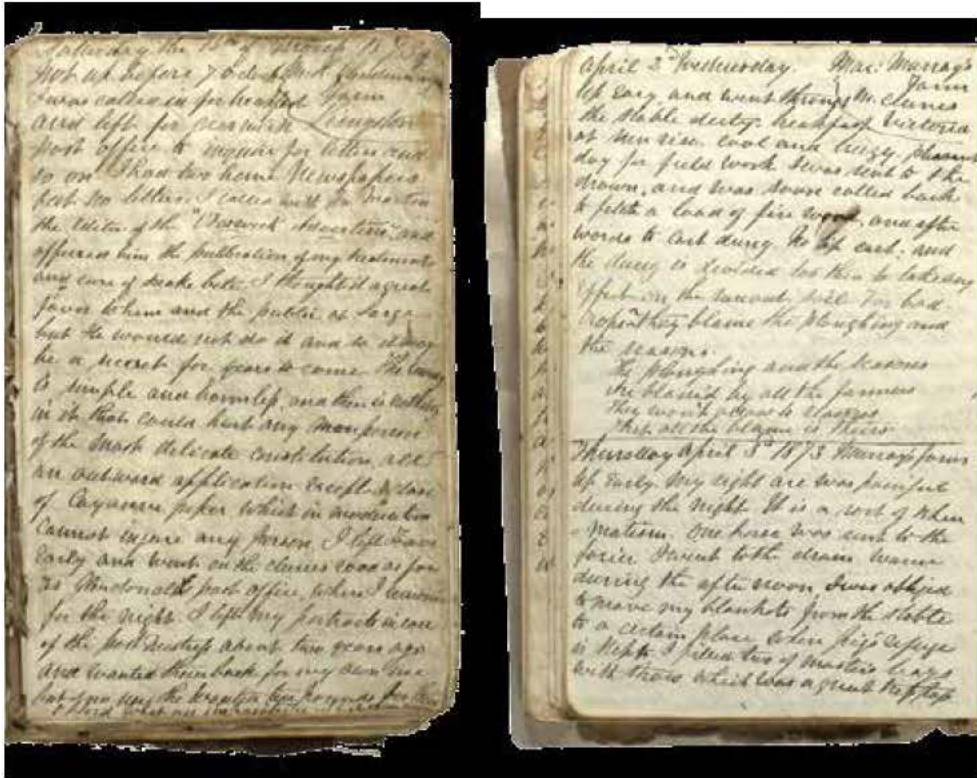 Saturday the 15th of March 1873
Not up before 7 o'clock Mr
I was called in for breakfast Farm
and left for Learmonth Livingston
post office to inquire for letters and
so on I had two home Newspapers
but no letters. I called with Mr Martin
the Editor of the " Advertiser" and
offered him the publication of my treatment
and cure of snake bite. I thought it a great
favor to him and the public at large
but he would not do it and so it may
be a secret for years to come. The
is simple and harmless, and there is nothing
in it that could hurt any person
of the most delicate constitution, all
an outward application except a dose
of Cayanne peper which in moderation
cannot injure any person. I left
Early and went on the clunes road as far
as Glendonald post office, where I
for the night. I left my portraits in care
of the post about two years ago
and wanted them back for my own use
but
April 2nd Wednesday. Mac: Murray's
Farm
Up Early and went through Mc. Clunes
the stable duty. breakfast Victoria
at sun rise. cool and breezy
day for field work I was sent to the
drown, and was soon called back
to fetch a load of fire wood, and after
words to cart dung. to cart. and
the dung is decided too thin to take any
effect on the soil. For bad
crops they blame the ploughing and
the seasons.
The ploughing and the seasons
Are blamed by all the farmers
they won't
that all the blame is theirs
Thursday April 3rd 1873 Murray's farm
Up Early. My right arm was painful
during the Night. It is a sort of rheu
-matism. One horse was sent to the
farier I went to the drain warm
during the after noon. I was obliged
to move my blankets from the stable
to a certain place where pig's refuge
is Kept. I filled two of master's bags
with straw which was a great